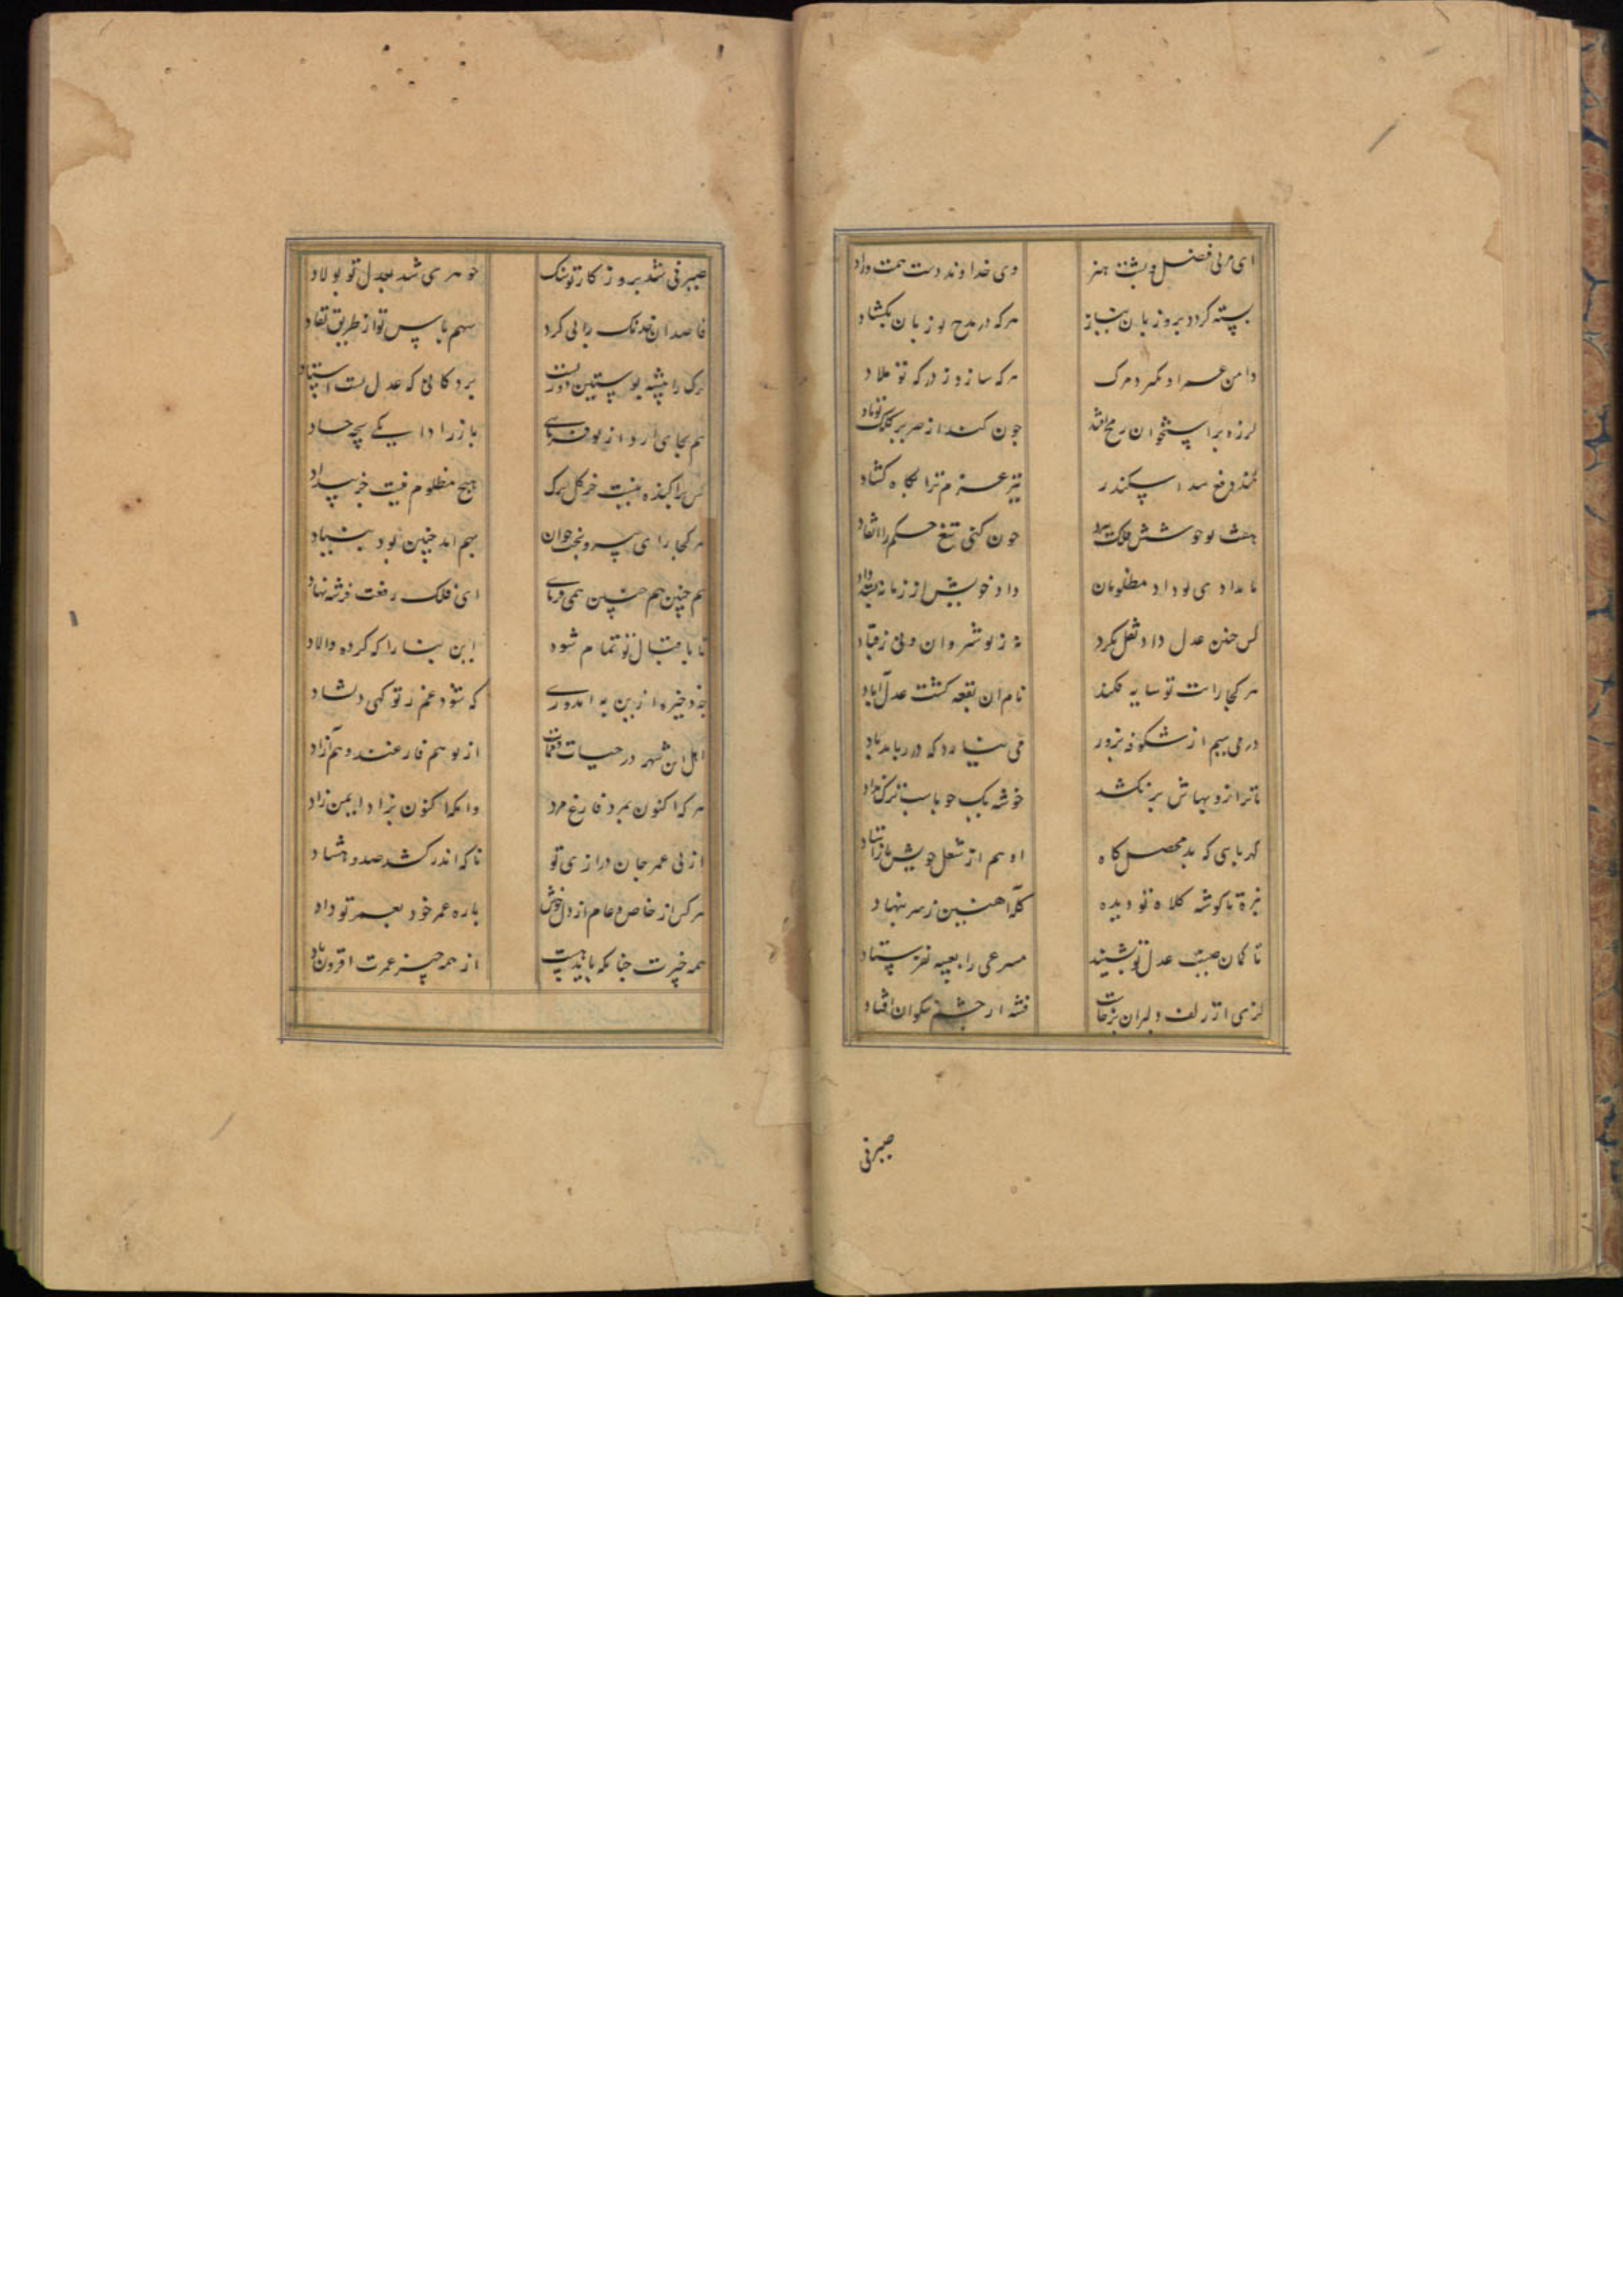 ای مربی فضل و پشت هنر
وی خداوند دست همت وراد
بسته کردد بروز بان نیاز
هرکه در مدح تو زبان بکشاد
دامن عمر او نکیرد مرک
هرکه سازد ز درکه تو ملاد
لرزه بر استخوان رمح افتد
چون کند از صریر کلک تو یاد
بکند دفع سد اسکندر
تیر عزم ترا بکاه کشاد
چون کنی تیغ حکم را انفاد
بامدادی تو داد مظلومان
داد خویش از زمانه
کس چنین عدل داد نقل نکرد
نه ز نوشروان و نی ز قباد
هرکجا رایت تو سایه فکند
نام ان بقعه کشت عدل آباد
درمی سیم از شکوفه بزور
می نیارد که در رباید باد
تا ترازو بهاش برنکشد
خوشه یک جو
کهربایی که بد محصل کاه
او هم از شغل خویش باز استاد
نیزه تا کوشه کلاه تو دیده
کله آهنین ز سر بنهاد
تا کمان صیت عدل تو بشنید
مسرعی را بعیبه نفرستاد
کژی از زلف دلبران برخاست
فتنه از چشم نیکوان افتاد
صیرفی
صیرفی شد بروزکار تو سنک
جوهری شد بعدل تو پولاد
قاصدان خدنک را پی کرد
سهم باس تو از طریق نفاد
کرک را پیشه پوستین دوزیست
بر دکانی که عدل تست استاد
هم بجای
باز را دایکی بچه خاد
کس پراکنده نیست جز کل برک
هیچ مظلوم نیست جز بیداد
هرکجا رای پیر و بخت جوان
بهم آمد چنین بود بنیاد
هم چنین هم چنین همی فرمای
ای فلک رفعت فرشته نهاد
تا باقبال تو تمام شود
این بنا را که کرده والاد
چه ذخیره ازین به اندوزی
که شود غم ز تو کهی دلشاد
اهل این شهر در حیات و ممات
از تو هم فارغند و هم آزاد
هرکه اکنون بمرد فارغ مرد
وانکه اکنون بزاد ایمن زاد
از پی عمر جان درازی تو
تا که اندر کشد صد و هشتاد
هرکس از خاص و عام از دل خوش
پاره عمر خود بعمر تو داد
همه چیزت چنانکه باید هست
از همه چیز عمرت افزون باد